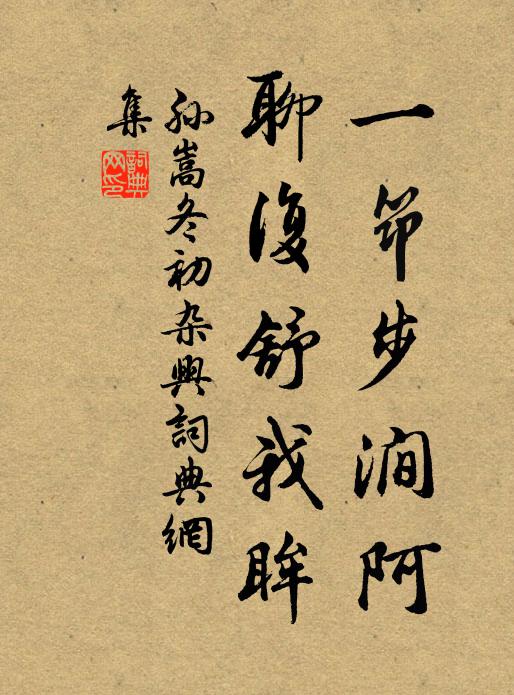 一笻步澗阿
聊復舒我眸
孫嵩冬初杂興詞典網
集
詞典
网印